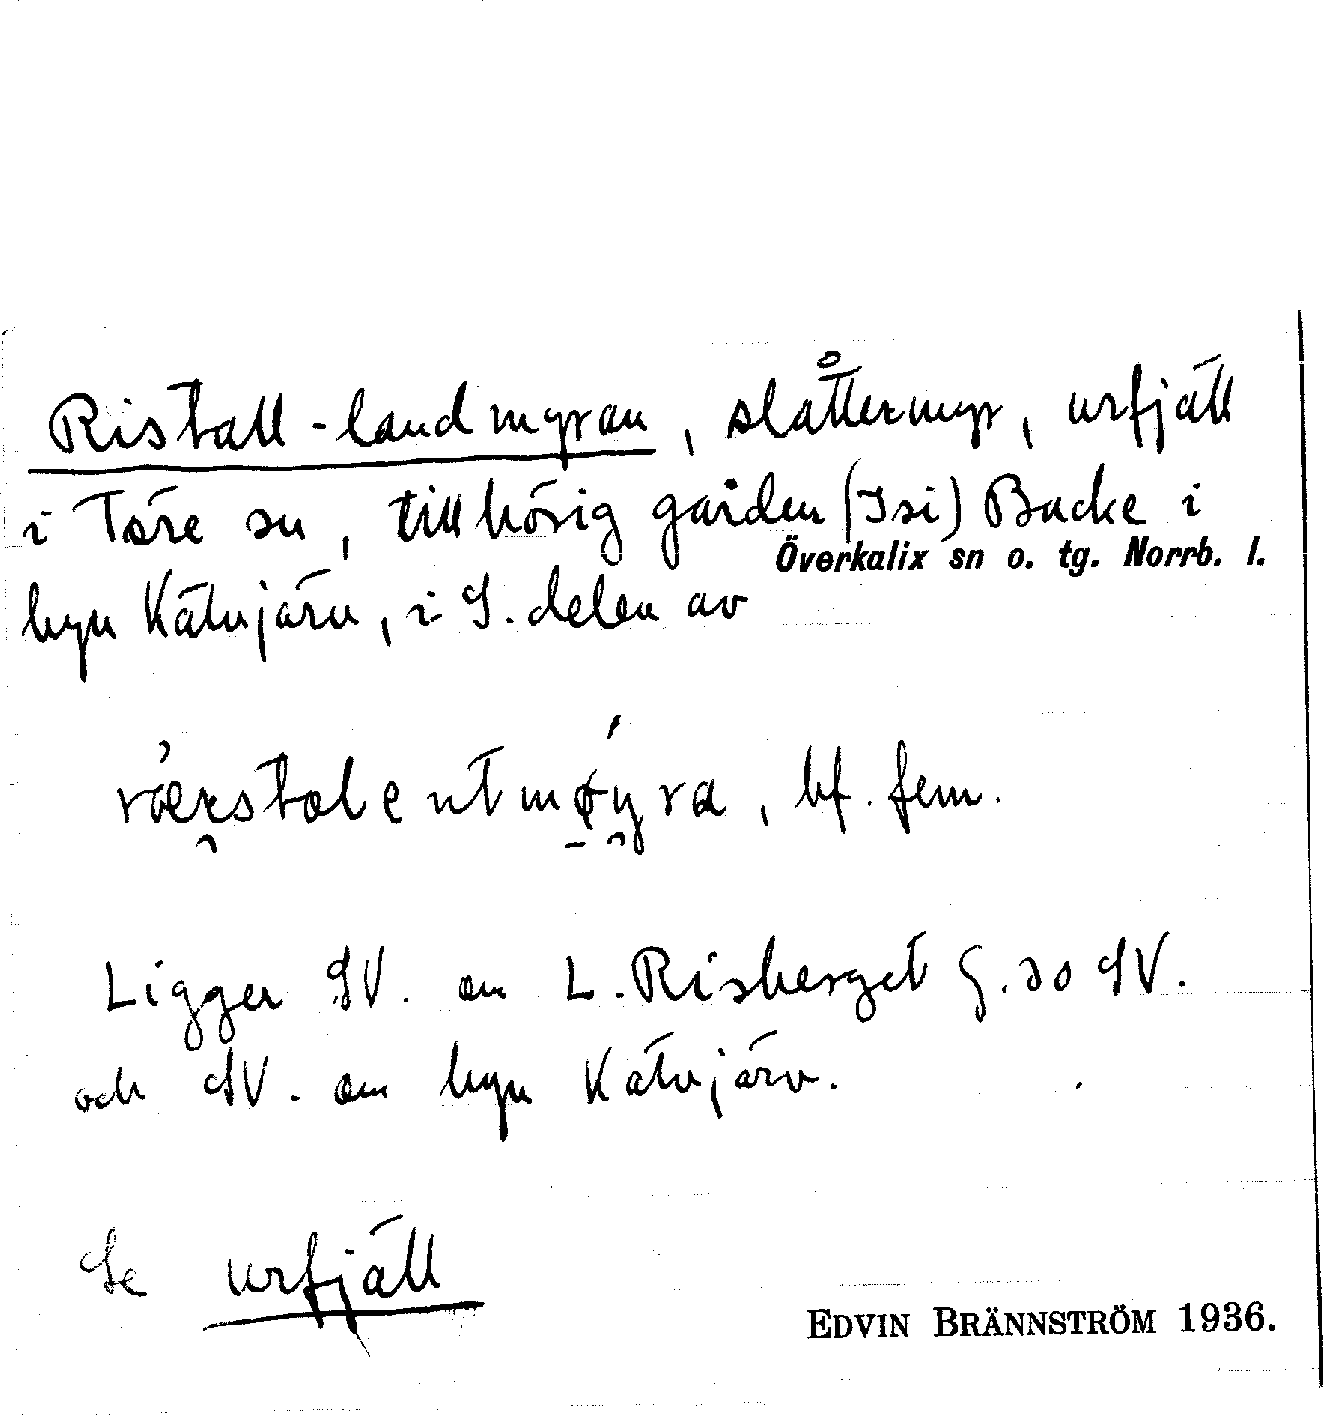 Ristall-landmyran, slåttermyr, urfjäll
i Töre sn, tillhörig gården (Isi) Backe i
Överkalix sn o. tg. Norrb. l.
byn Kätujärv, i S. delen av
bf. fem.
Ligger SV. om L. Risberget S. 30 SV.
och SV. om byn Kätujärv.
Se urfjäll
EDVIN BRÄNNSTRÖM 1936.